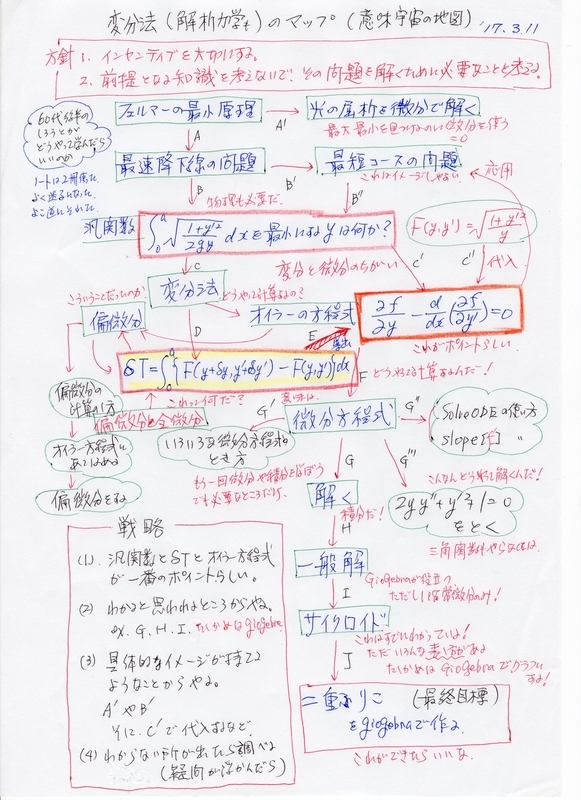 変分法(解析力学も)のマップ(意味宇宙の地図) '17.3.11
方針 1. インセンティブを大切にする。
2. 前提となる知識を考えないで、その問題を解くために必要なことを考える。
60代後半の
しろうとが
どうやって学んだら
いいのか
ノートは2冊
フェルマーの最小原理
光の屈折を微分で解く
A
A'
最大最小を見つけるのに微分を使う
=0
最速降下線の問題
最短コースの問題
これはイメージしやすい
応用
B
B'
B''
物理も必要だ。
汎関数
∫₀ᵃ √(1+y'²/2gy) dx を最小にする y は何か?
F(y,y')=√(1+y'²/y)
C
変分と微分のちがい
C'
C''
代入
こういうことだったのか
変分法
どうやって計算するの?
偏微分
オイラーの方程式
∂f/∂y − d/dx(∂f/∂y')=0
これがポイントらしい
D
E
導出
δT=∫₀ᵃ{F(y+δy,y'+δy')−F(y,y')}dx
F
どうやって計算するんだ!
偏微分の
計算の仕方
これって何だ?
偏微分と全微分
G'
意味は、
微分方程式
G''
SolveODEの使い方
slope[ ] 〃
オイラー方程式に
あてはめる
いろいろな微分方程式の
とき方
G
G'''
偏微分をする
もう一回微分や積分を学ぼう
でも必要なところだけ。
こんなんどうやって解くんだ!
2yy''+y'²+1=0
をとく
三角関数もやらなくては。
解く
積分だ!
H
一般解
GioGebraが役立つ
ただし1階常微分のみ!
I
サイクロイド
これはすでにわかっているよ!
ただいろんな表し方がある
たしかめは GioGebraでグラフ
J
二重ふりこ (最終目標)
をgiogebraで作る
これができたらいいな。
戦略
(1) 汎関数とδTとオイラー方程式
が一番のポイントらしい。
(2) わかると思われるところからやる。
ex. G. H. I. たしかめはgiogebra
(3) 具体的なイメージが持てる
ようなことからやる。
A'やB'
それに、C'で代入するなど
(4) わからない所が出たら調べる
(疑問が浮かんだら)